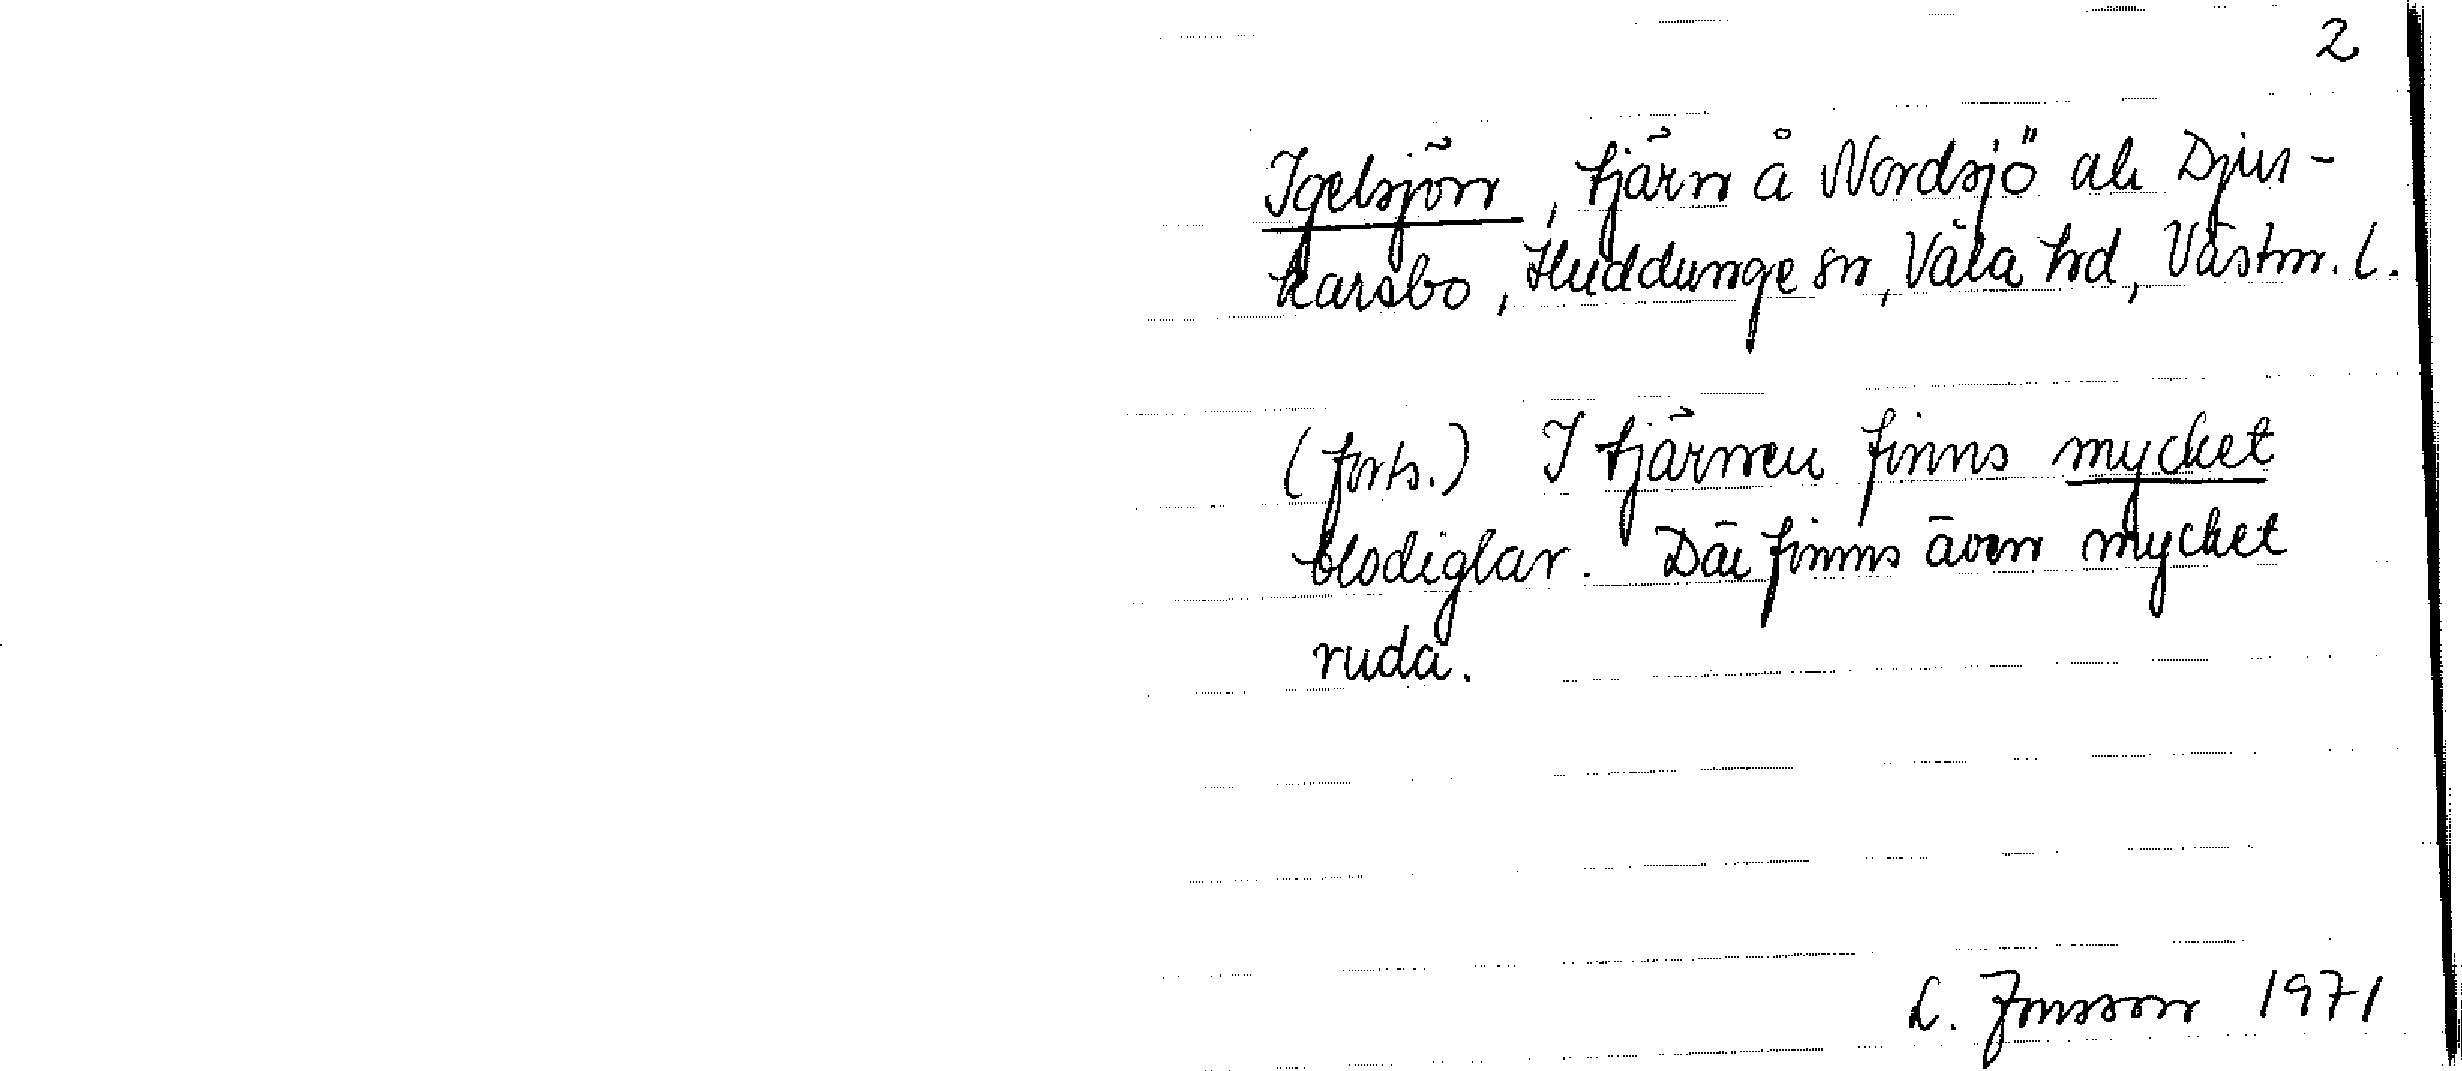 2
Igelsjön, tjärn å Nordsjö ah Djur-
karsbo, Huddunge sn, Våla hd, Västm. l.
(forts.) I tjärnen finns mycket
blodiglar. Där finns även mycket
ruda.
L. Jonsson 1971